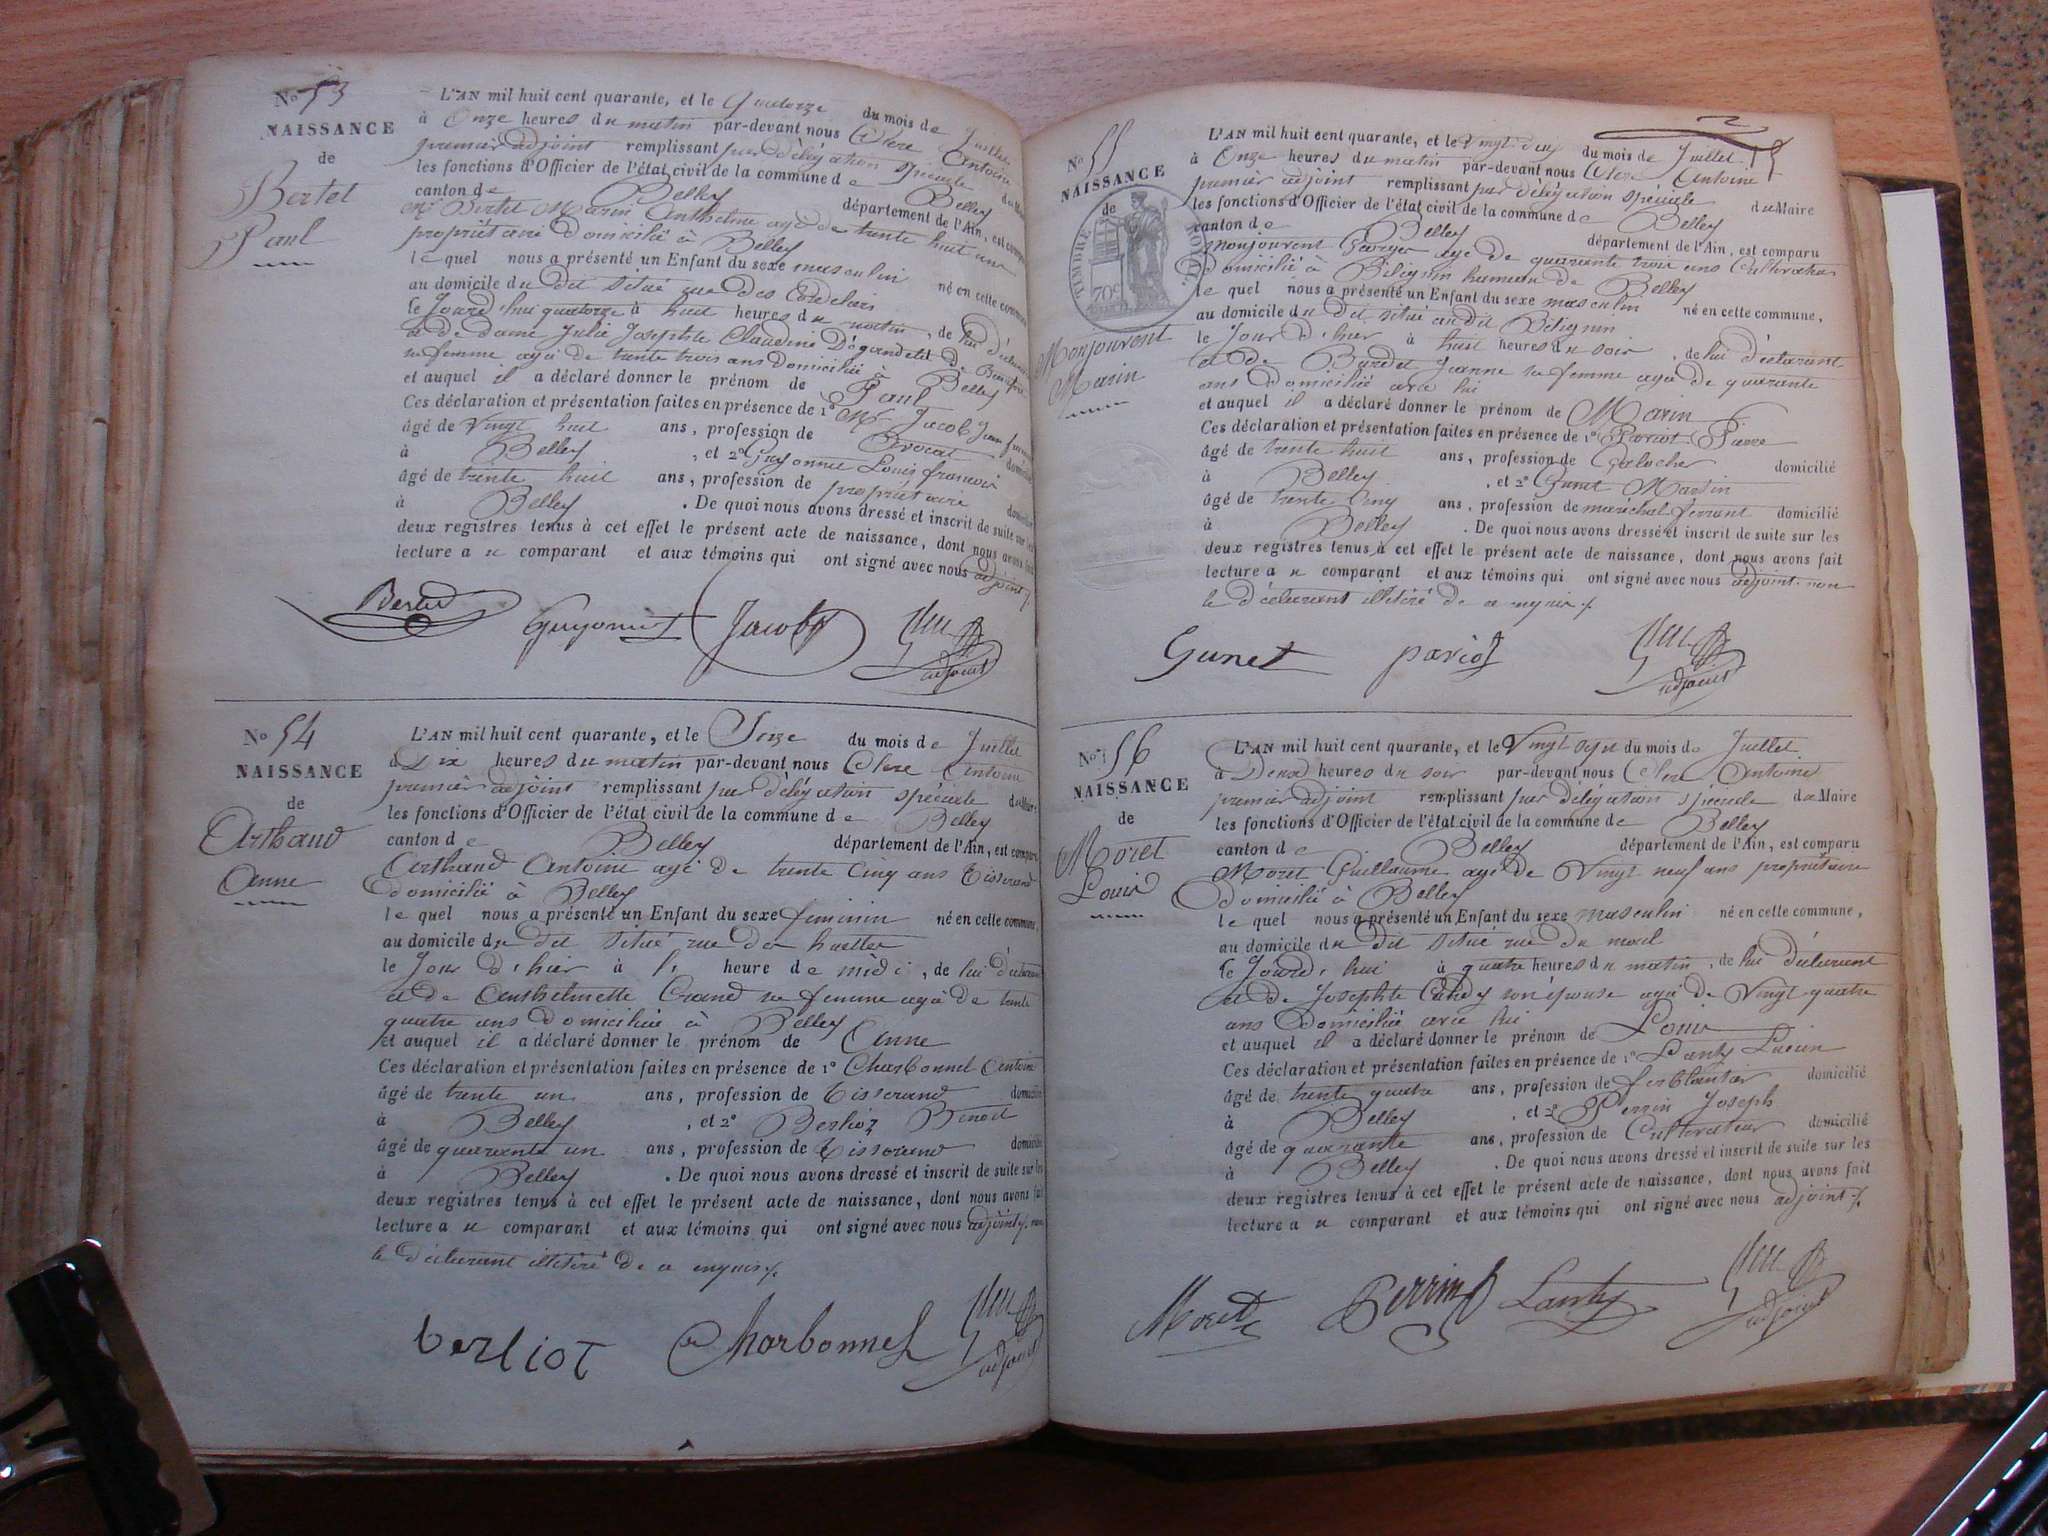 No 53
NAISSANCE
de
Bertet
Paul
L'AN mil huit cent quarante, et le quatorze du mois de Juillet
à Onze heures du matin par-devant nous Clerc Antoine
premier adjoint remplissant par délégation spéciale du Maire
les fonctions d'Officier de l'état civil de la commune de Belley
canton de Belley département de l'Ain, est comparu
Mr Bertet Marin Anthelme agé de trente huit ans
propriétaire domicilié à Belley
le quel nous a présenté un Enfant du sexe masculin né en cette commune
au domicile du dit situé rue des Cordeliers
le Jourd'hui quatorze à huit heures du matin, de lui déclarant
et de dame Julie Josephte Claudine
sa femme agée de trente trois ans domiciliée à Belley
et auquel il a déclaré donner le prénom de Paul
Ces déclaration et présentation faites en présence de 1° Mr Jacob Jean
âgé de vingt huit ans, profession de Avocat domicilié
à Belley, et 2° Guyonnet Louis françois
âgé de trente huit ans, profession de propriétaire
à Belley. De quoi nous avons dressé et inscrit de suite sur les
deux registres tenus à cet effet le présent acte de naissance, dont nous avons fait
lecture au comparant et aux témoins qui ont signé avec nous adjoint
Bertet Guyonnet Jacob Clerc adjoint
No 54
NAISSANCE
de
Arthaud
Anne
L'AN mil huit cent quarante, et le Seize du mois de Juillet
à Dix heures du matin par-devant nous Clerc Antoine
premier adjoint remplissant par délégation spéciale du Maire
les fonctions d'Officier de l'état civil de la commune de Belley
canton de Belley département de l'Ain, est comparu
Arthaud Antoine agé de trente cinq ans Tisserand
domicilié à Belley
le quel nous a présenté un Enfant du sexe feminin né en cette commune,
au domicile du dit situé rue des
le Jour d'hier à heure de midi, de lui déclarant
et de Anthelmette sa femme agée de trente
quatre ans domiciliée à Belley
et auquel il a déclaré donner le prénom de Anne
Ces déclaration et présentation faites en présence de 1° Charbonnel Antoine
âgé de trente un ans, profession de Tisserand domicilié
à Belley, et 2° Berlioz Benoit
âgé de quarante un ans, profession de Tisserand domicilié
à Belley. De quoi nous avons dressé et inscrit de suite sur les
deux registres tenus à cet effet le présent acte de naissance, dont nous avons fait
lecture au comparant et aux témoins qui ont signé avec nous adjoint, non
le déclarant illitéré de ce enquis
berliot Charbonnel Clerc adjoint
No 55
NAISSANCE
de
TIMBRE ROYAL
70c
Monjouvent
Marin
L'AN mil huit cent quarante, et le Vingt deux du mois de Juillet
à Onze heures du matin par-devant nous Clerc Antoine
premier adjoint remplissant par délégation spéciale du Maire
les fonctions d'Officier de l'état civil de la commune de Belley
canton de Belley département de l'Ain, est comparu
Monjouvent agé de quarante trois ans Cultivateur
domicilié à Billignin hameau de Belley
le quel nous a présenté un Enfant du sexe masculin né en cette commune,
au domicile du dit situé audit Billignin
le Jour d'hier à huit heures du soir, de lui déclarant
et de Jeanne sa femme agée de quarante
ans domiciliée avec lui
et auquel il a déclaré donner le prénom de Marin
Ces déclaration et présentation faites en présence de 1° Pariot Pierre
âgé de trente huit ans, profession de domicilié
à Belley, et 2° Gunet Martin
âgé de trente cinq ans, profession de maréchal ferrant domicilié
à Belley. De quoi nous avons dressé et inscrit de suite sur les
deux registres tenus à cet effet le présent acte de naissance, dont nous avons fait
lecture au comparant et aux témoins qui ont signé avec nous adjoint. non
le déclarant illitéré de ce enquis
Gunet pariot Clerc adjoint
No 56
NAISSANCE
de
Moret
Louis
L'AN mil huit cent quarante, et le Vingt sept du mois de Juillet
à Deux heures du soir par-devant nous Clerc Antoine
premier adjoint remplissant par délégation spéciale du Maire
les fonctions d'Officier de l'état civil de la commune de Belley
canton de Belley département de l'Ain, est comparu
Moret Guillaume agé de Vingt neuf ans propriétaire
domicilié à Belley
le quel nous a présenté un Enfant du sexe masculin né en cette commune,
au domicile du dit situé rue du mail
le Jourd'hui à quatre heures du matin, de lui déclarant
et de Josephte son épouse agée de Vingt quatre
ans domiciliée avec lui
et auquel il a déclaré donner le prénom de Louis
Ces déclaration et présentation faites en présence de 1° Lanty Lucien
âgé de trente quatre ans, profession de ferblantier domicilié
à Belley, et 2° Perrin Joseph
âgé de quarante ans, profession de Cultivateur domicilié
à Belley. De quoi nous avons dressé et inscrit de suite sur les
deux registres tenus à cet effet le présent acte de naissance, dont nous avons fait
lecture au comparant et aux témoins qui ont signé avec nous adjoint
Moret Perrin Lanty Clerc adjoint